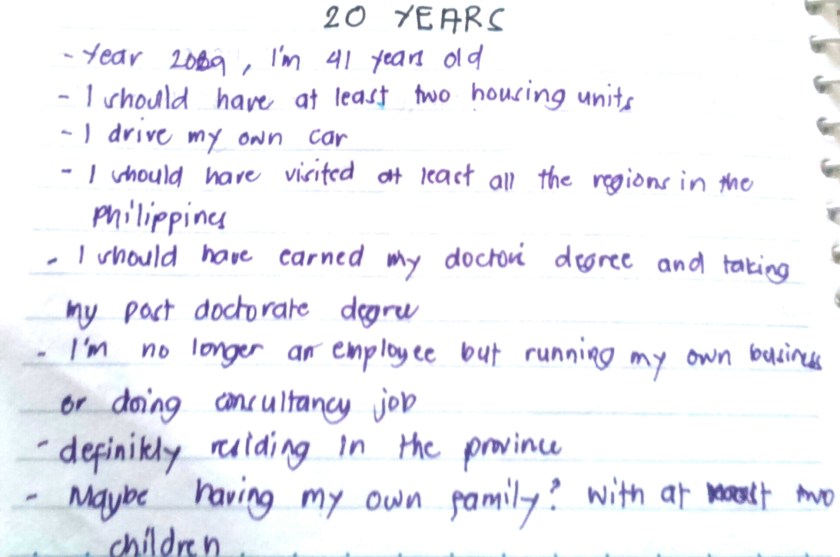 20 YEARS
- Year 2039, I'm 41 years old
- I should have at least two housing units
- I drive my own car
- I should have visited at least all the regions in the
Philippines
- I should have earned my doctoral degree and taking
my post doctorate degree
- I'm no longer an employee but running my own business
or doing consultancy job
- definitely residing in the province
- Maybe having my own family? with at most two
children